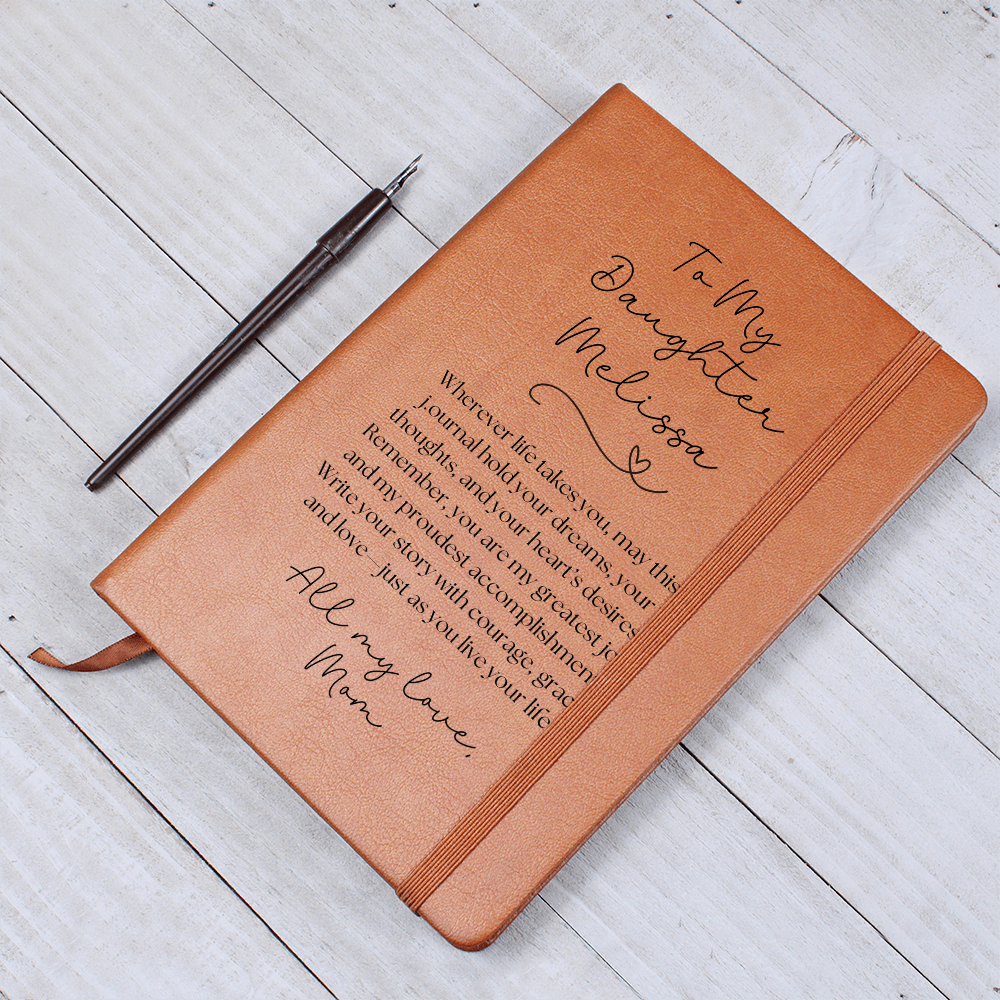 To My
Daughter
Melissa
Wherever life takes you, may this
journal hold your dreams, your
thoughts, and your heart's desires
Remember, you are my greatest jo
and my proudest accomplishmen
Write your story with courage, grac
and love—just as you live your life
All my love,
Mom